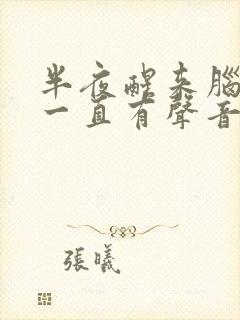 半夜醒来腦
一直有聲音
張曦